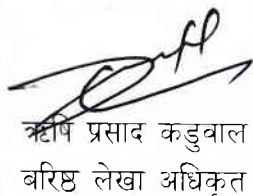 ऋषि प्रसाद कडुवाल
बरिष्ठ लेखा अधिकृत